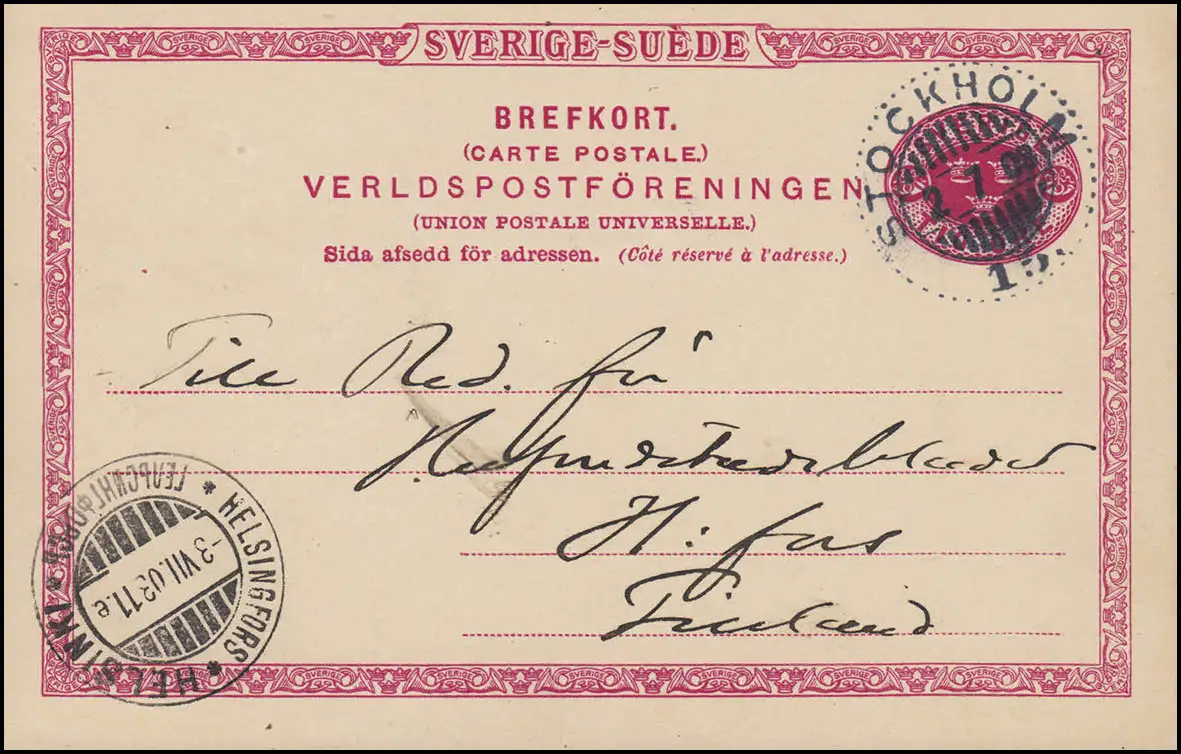 SVERIGE-SUÈDE
BREFKORT.
(CARTE POSTALE.)
VERLDSPOSTFÖRENINGEN
(UNION POSTALE UNIVERSELLE.)
Sida afsedd för adressen. (Côté réservé à l'adresse.)
STOCKHOLM
2 7
15.
Till Red. för
Hufvudstadsbladet
H:fors
Finland
ГЕЛЬСИНГФОРСЪ * HELSINGFORS * HELSINKI *
-3.VII.03.11.e